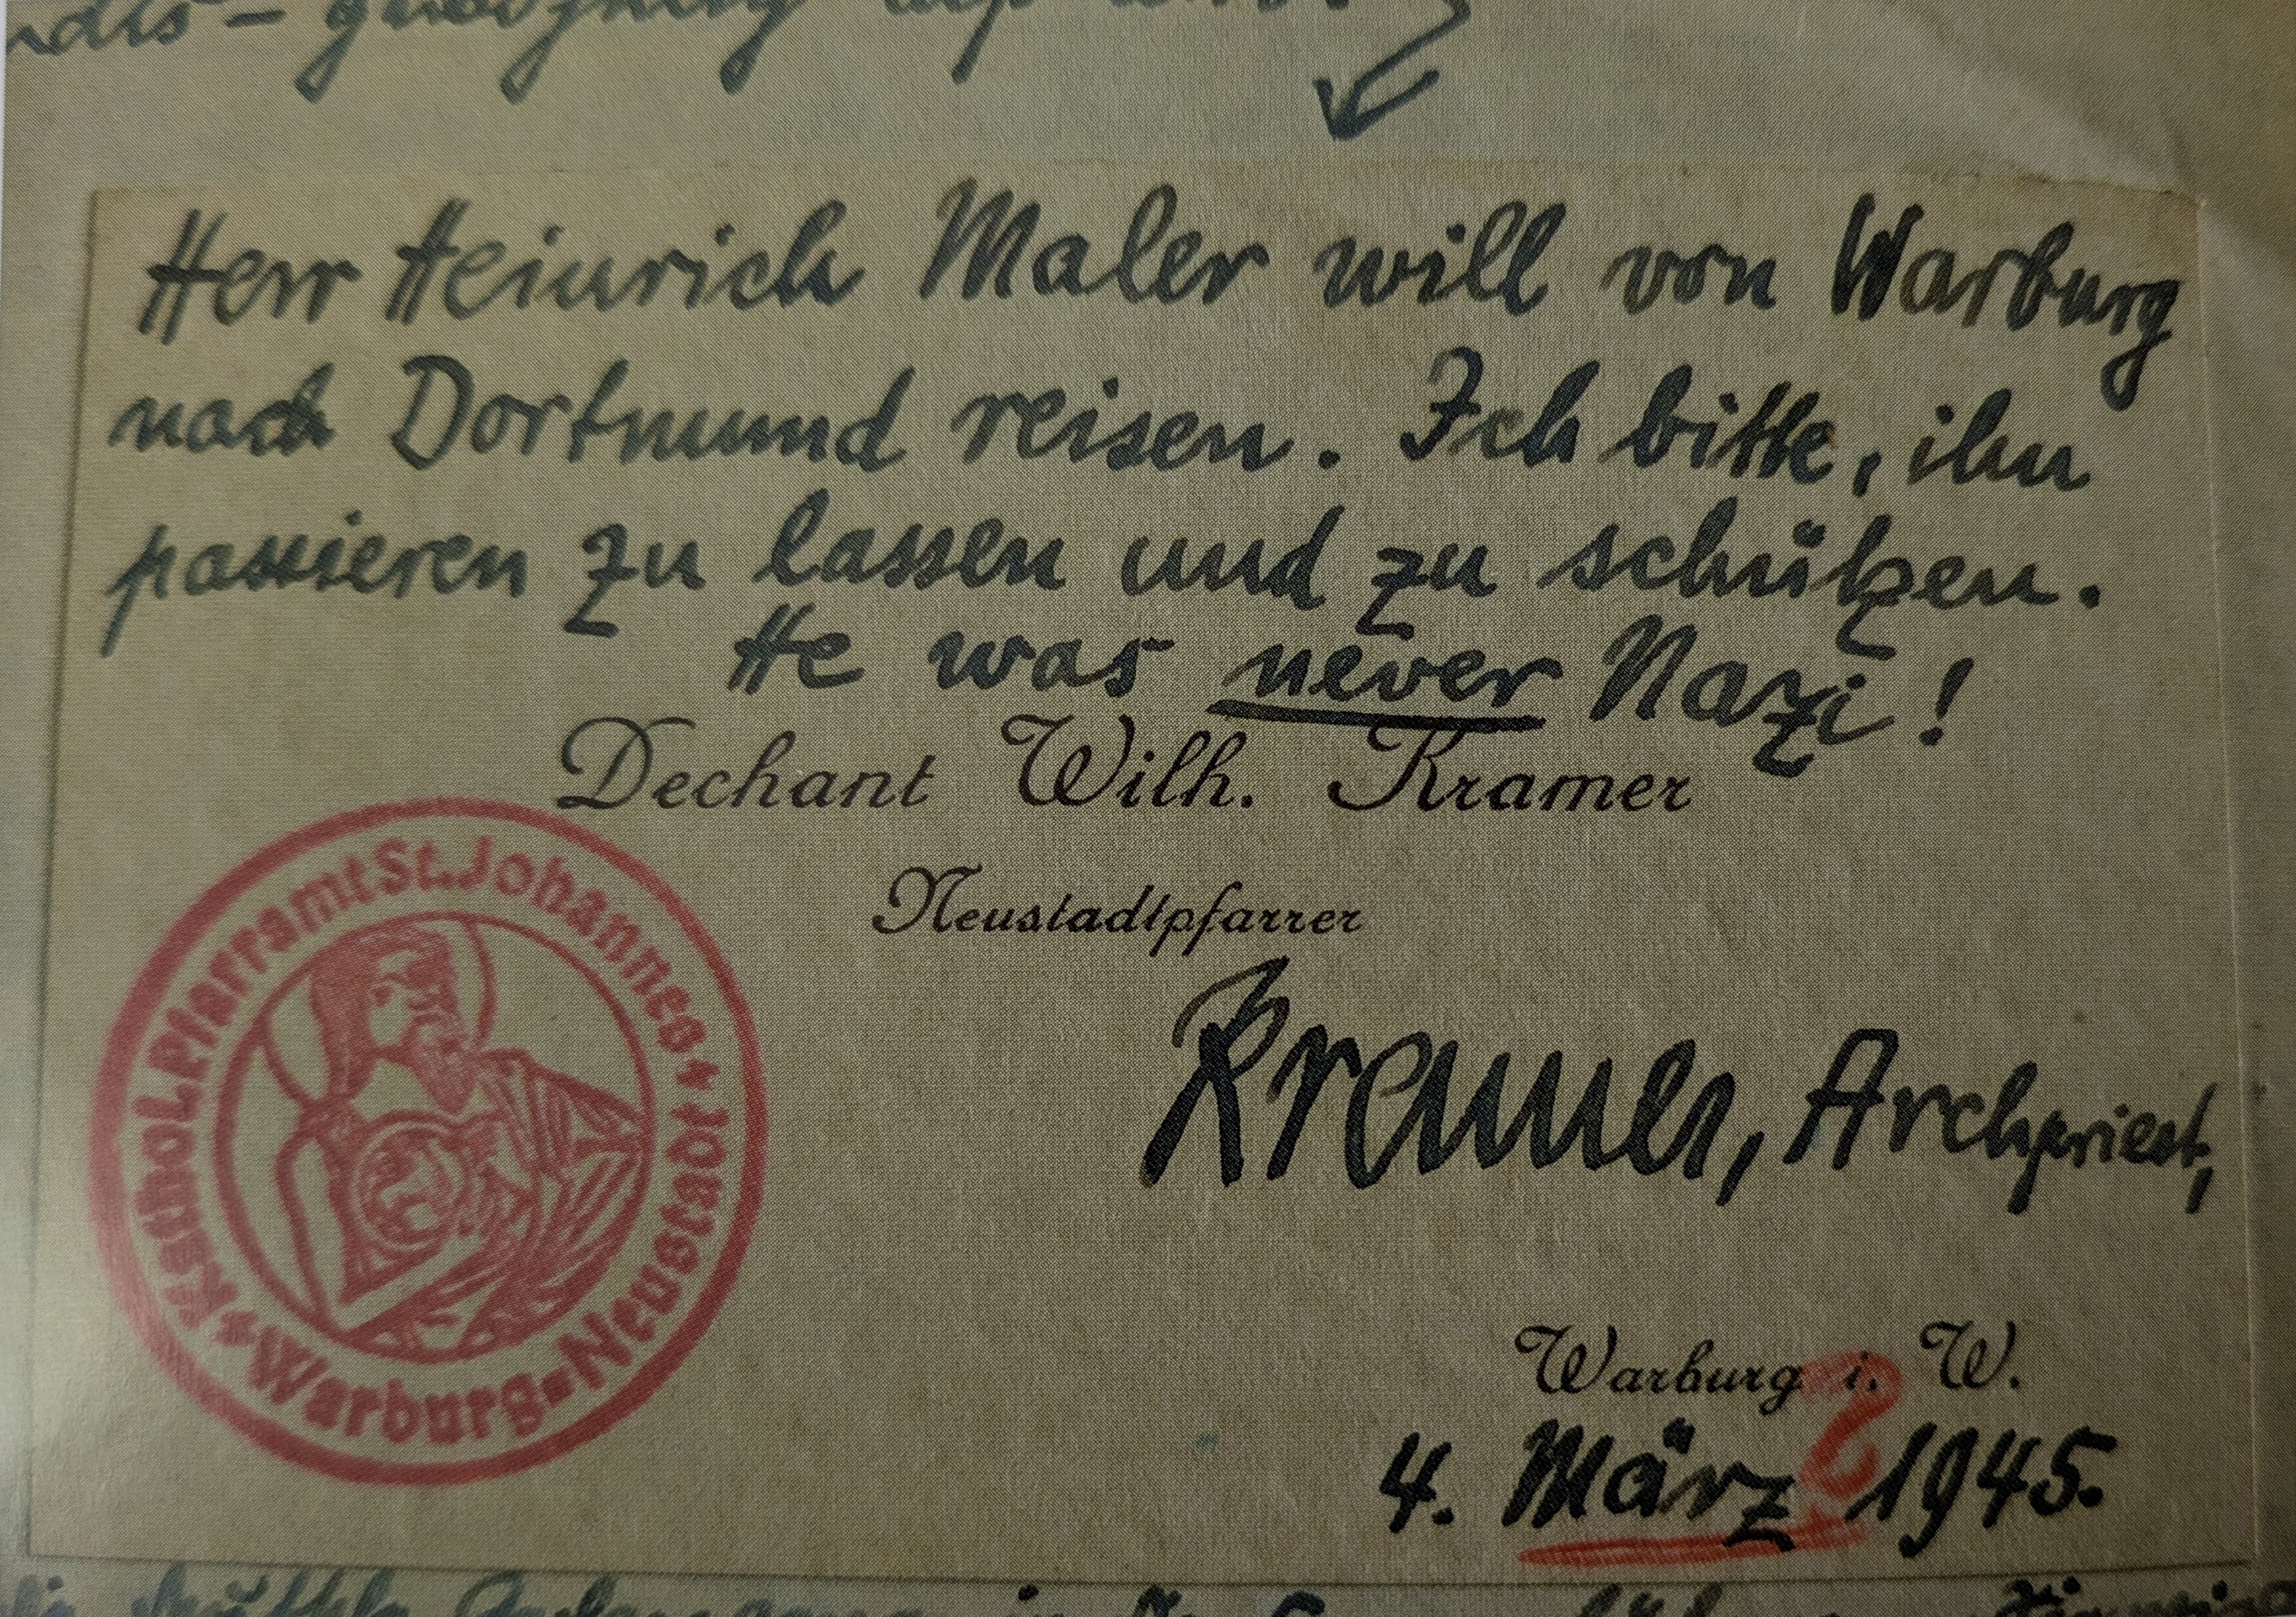 Herr Heinrich Maler will von Warburg
nach Dortmund reisen. Ich bitte, ihn
passieren zu lassen und zu schützen.
He was never Nazi!
Dechant Wilh. Kramer
Neustadtpfarrer
Kramer, Archpriest,
Kathol. Pfarramt St. Johannes + Warburg=Neustadt +
Warburg i. W.
?
4. März 1945.